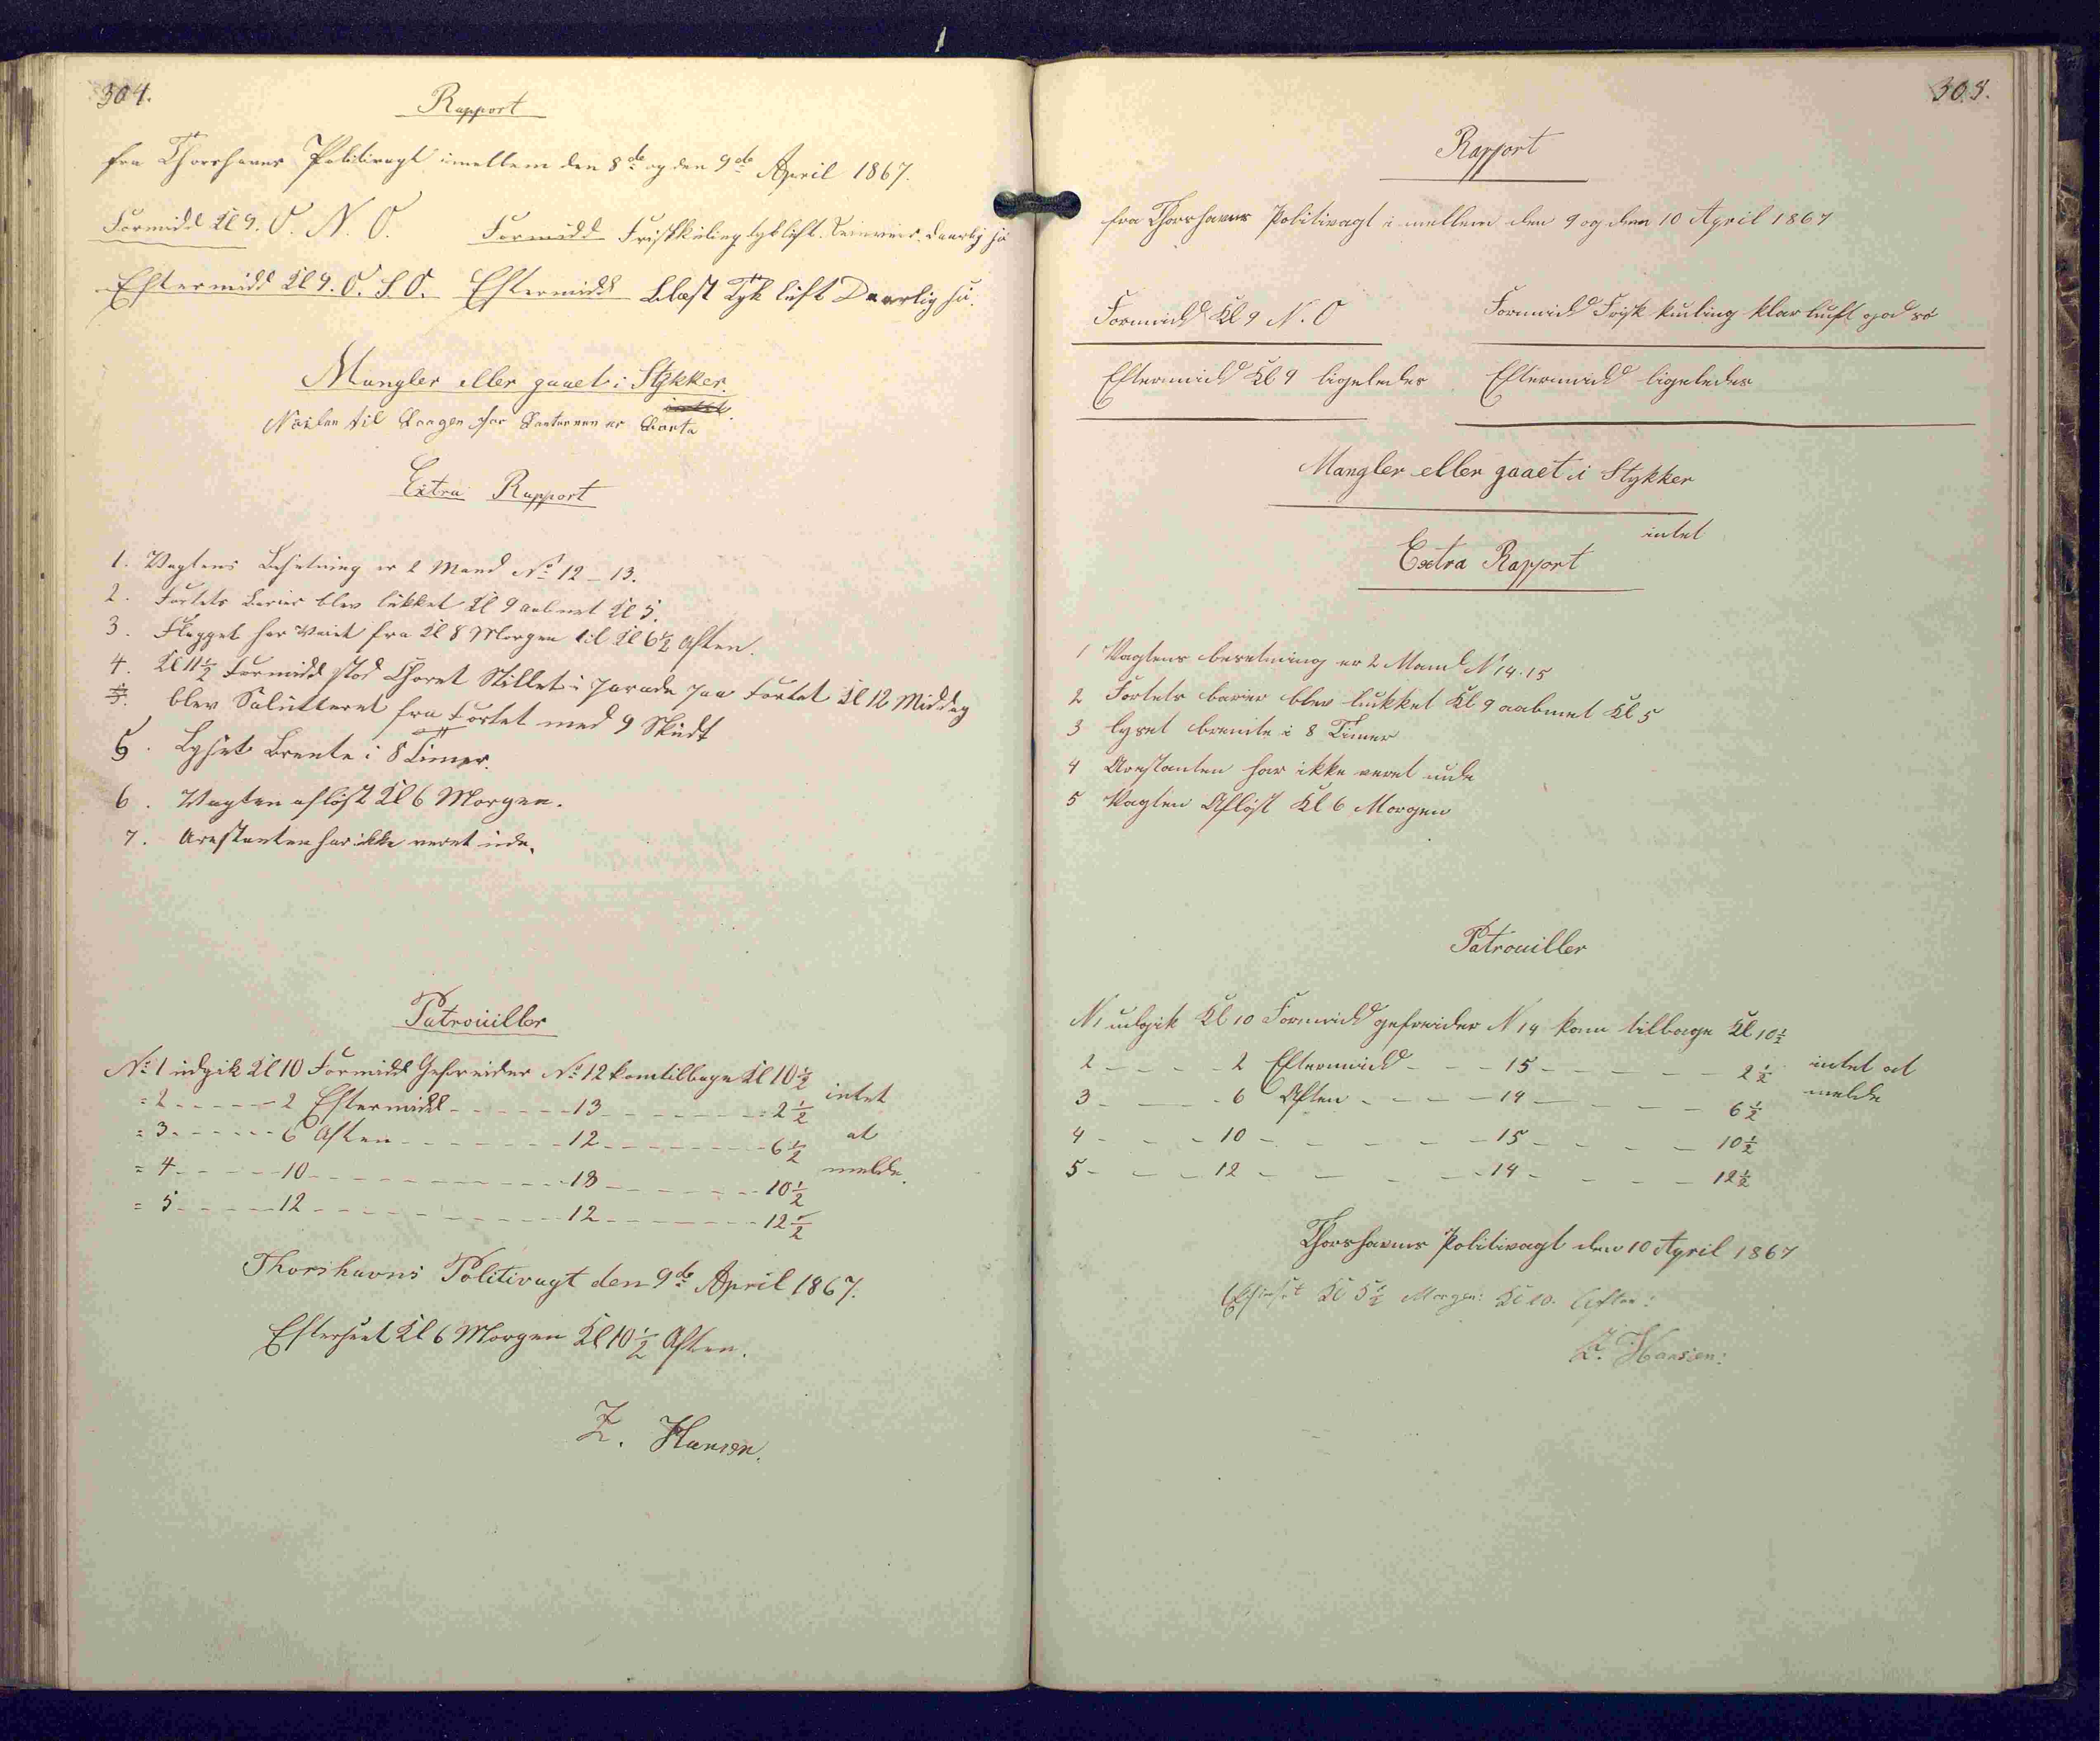 304.
Rapport
fra Thorshavns Politivagt imellem den 8de og den 9de April 1867.
Formidd Kl 9. O. N. O. Formidd Frisk Kuling tyk luft. daarlig sö
Eftermidd Kl 9. O. S. O. Eftermidd Blæst Tyk luft Daarlig sö.
Mangler eller gaaet i Stykker.
intet.
Nöilen til Laagen for Lanternen er borte
Extra Rapport
1. Vagtens Besetning er 2 Mand No 12 - 13.
2. Fortets Barier blev lukket Kl 9 aabnet Kl 5.
3. Flagget har Vaiet fra Kl 8 Morgen til Kl 6½ Aften.
4. Kl 11½ Formidd stod Choret Stillet i Parade paa Fortet Kl 12 Middag
blev Salutteret fra Fortet med 9 Skudt
5. Lyset Brente i 8 Timer.
6. Vagten aflöst Kl 6 Morgen.
7. Arestanten har ikke veret ude.
Patrouiller
No 1 udgik Kl 10 Formidd Gefreider No 12 kom tilbage Kl 10½ intet
= 2 - - - - - 2 Eftermidd - - - - - - 13 - - - - - - - - 2½
= 3 - - - - - 6 Aften - - - - - - - 12 - - - - - - - - 6½ at
= 4 - - - - - 10 - - - - - - - - - - - 13 - - - - - - - 10½ melde.
= 5 - - - - - 12 - - - - - - - - - - - 12 - - - - - - - 12½
Thorshavns Politivagt den 9de April 1867.
Efterseet Kl 6 Morgen Kl 10½ Aften.
Z. Hansen.
305.
Rapport
fra Thorshavns Politivagt i mellem den 9 og den 10 April 1867
Formidd Kl 9 N. O Formidd Frisk kuling klar luft god sö
Eftermidd Kl 9 ligeledes Eftermidd ligeledes
Mangler eller gaaet i Stykker
intet
Extra Rapport
1 Vagtens besetning er 2 Mand N 14. 15
2 Fortets barier blev lukket Kl 9 aabnet Kl 5
3 lyset brente i 8 Timer
4 Arestanten har ikke veret ude
5 Vagten Aflöst Kl 6 Morgen
Patrouiller
N 1 udgik Kl 10 Formidd gefreider N 14 kom tilbage Kl 10½
2 - - - - 2 Eftermidd - - - 15 - - - - - - 2½ intet at
3 - - - - 6 Aften - - - - 14 - - - - - 6½ melde
4 - - - - 10 - - - - - - 15 - - - - - 10½
5 - - - - 12 - - - - - - 14 - - - - - 12½
Thorshavns Politivagt den 10 April 1867
Efterset Kl 5½ Morgen: Kl 10. Aften:
Z. Hansen: